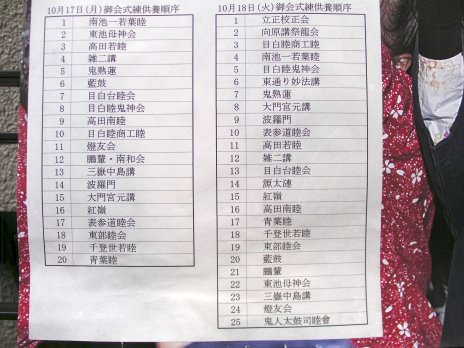 10月17日(月)御会式練供養順序
1 南池一若葉睦
2 東池母神会
3 高田若睦
4 雑二講
5 鬼熟蓮
6 藍鼓
7 目白台睦会
8 目白睦鬼神会
9 高田南睦
10 目白睦商工睦
11 燈友会
12 鵬輦・南和会
13 三嶽中島講
14 波羅門
15 大門宮元講
16 紅嶺
17 表参道睦会
18 東部睦会
19 千登世若睦
20 青葉睦
10月18日(火)御会式練供養順序
1 立正校正会
2 向原講祭龍会
3 目白睦商工睦
4 南池一若葉睦
5 目白睦鬼神会
6 東通り妙法講
7 鬼熟蓮
8 大門宮元講
9 波羅門
10 表参道睦会
11 高田若睦
12 雑二講
13 目白台睦会
14 源太漣
15 紅嶺
16 高田南睦
17 青葉睦
18 千登世若睦
19 東部睦会
20 藍鼓
21 鵬輦
22 東池母神会
23 三嶽中島講
24 燈友会
25 鬼人太鼓司睦會